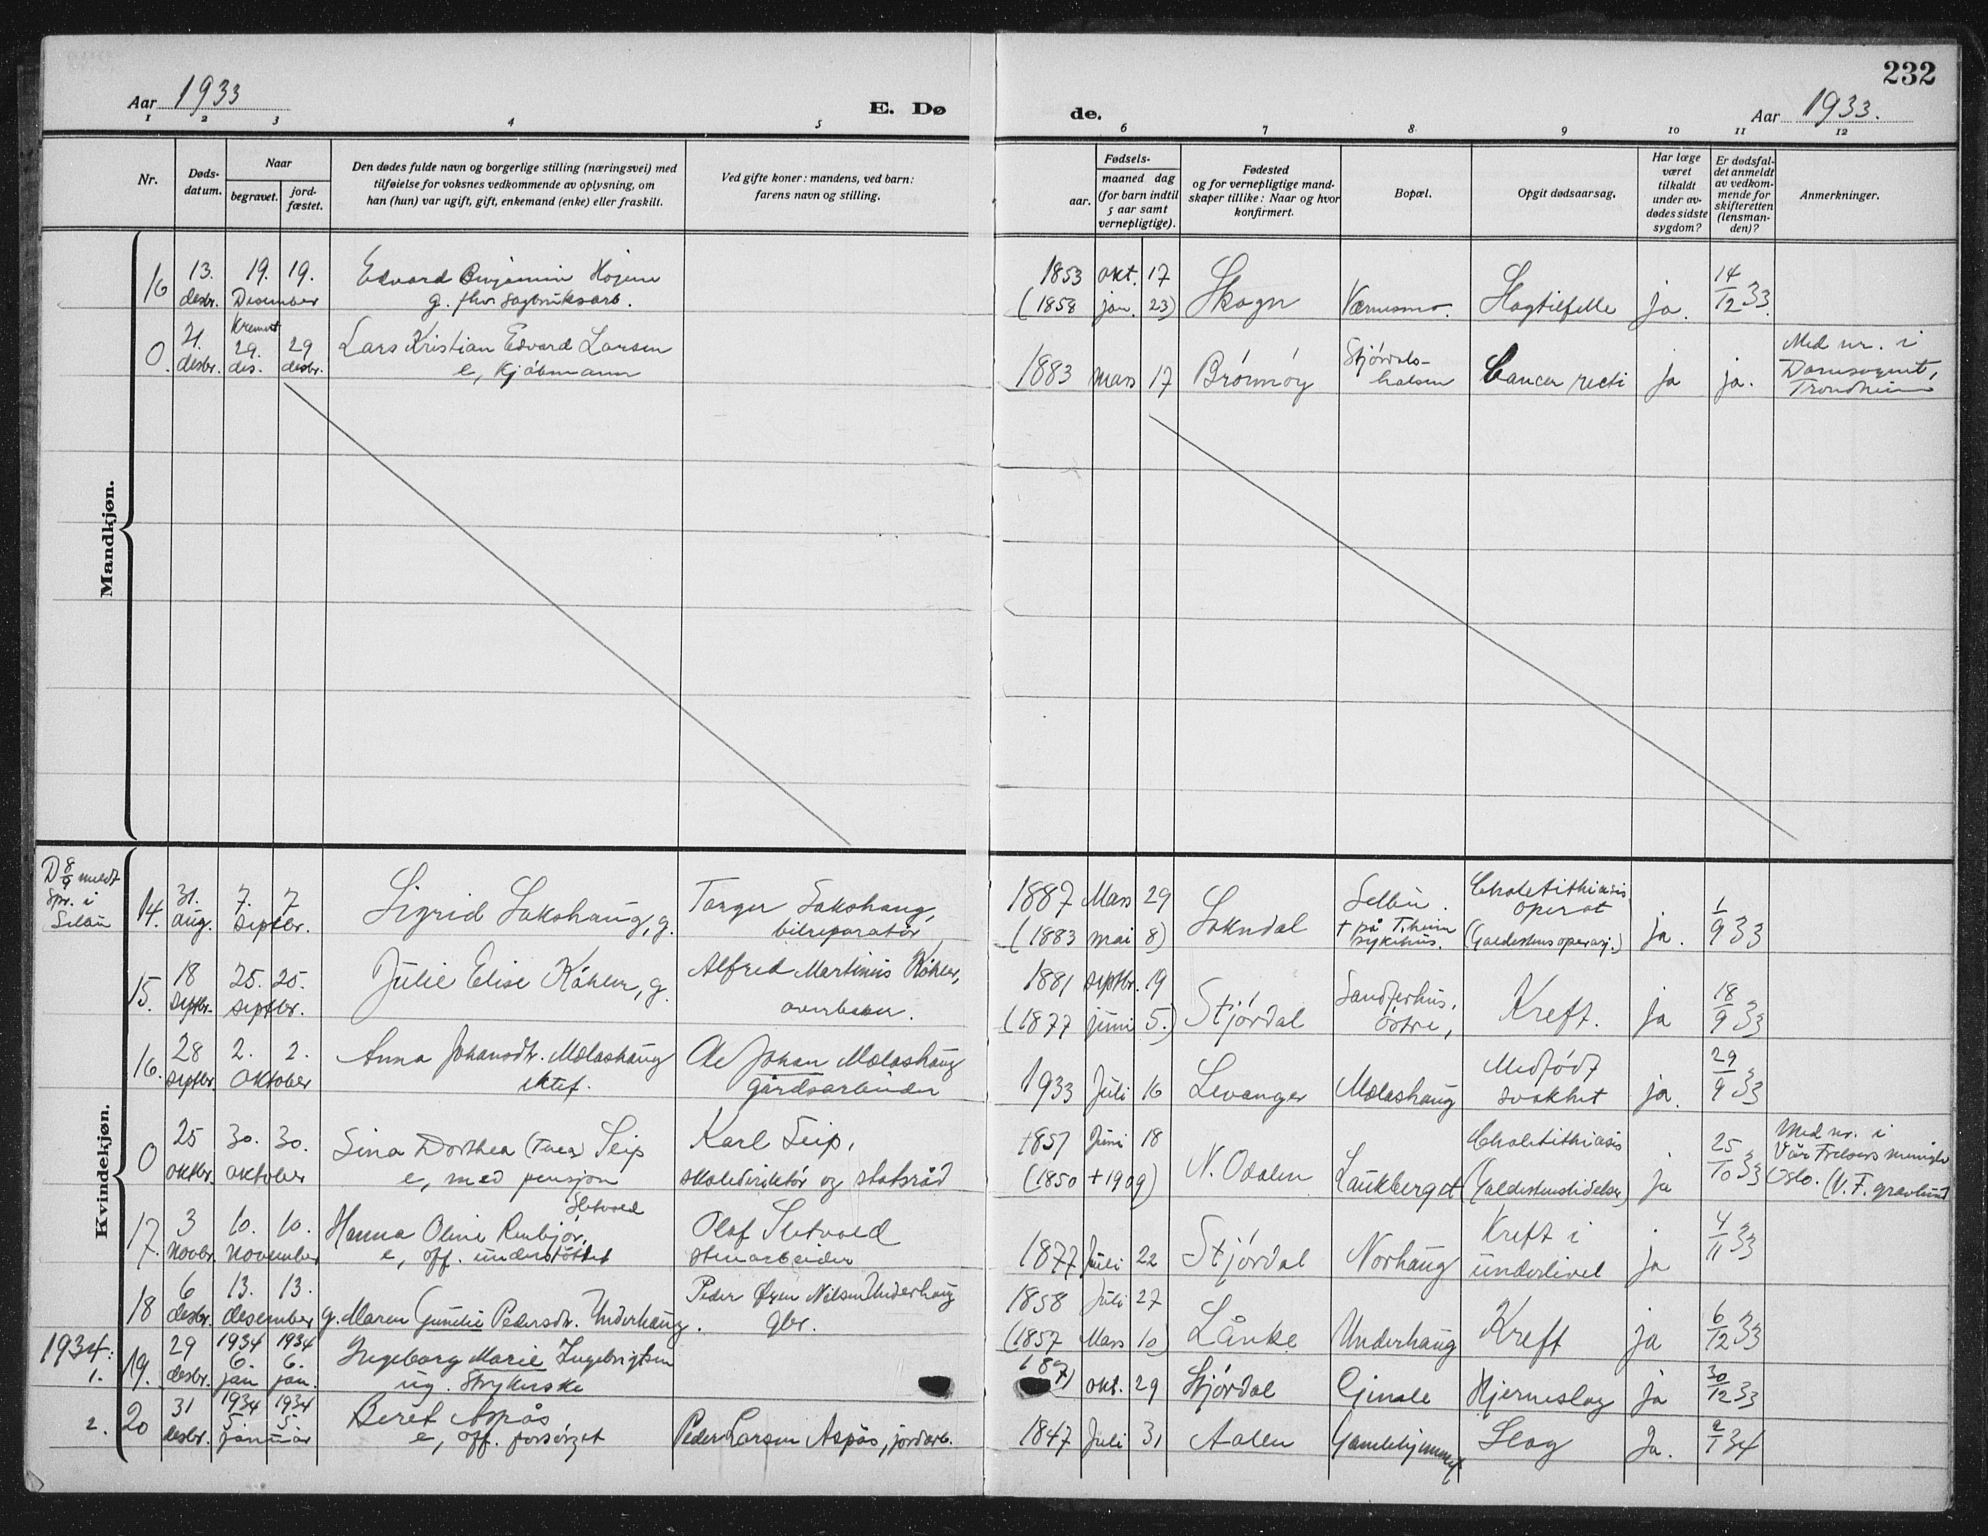 232
Aar 1933
E. Dø
de.
Aar 1933.
1 2 3 4 5 6 7 8 9 10 11 12
Nr.
Døds-
datum.
Naar
begravet.
jord-
fæstet.
Den dødes fulde navn og borgerlige stilling (næringsvei) med
tilføielse for voksnes vedkommende av oplysning, om
han (hun) var ugift, gift, enkemand (enke) eller fraskilt.
Ved gifte koner: mandens, ved barn:
farens navn og stilling.
Fødsels-
aar.
maaned dag
(for barn indtil
5 aar samt
vernepligtige).
Fødested
og for vernepligtige mand-
skaper tillike: Naar og hvor
konfirmert.
Bopæl.
Opgit dødsaarsag.
Har læge
været
tilkaldt
under av-
dødes sidste
sygdom?
Er dødsfal-
det anmeldt
av vedkom-
mende for
skifteretten
(lensman-
den)?
Anmerkninger.
Mandkjøn.
16 13. 19. 19. Edvard Benjamin
desbr. Desember g. fhv. sagbruksarb.
1853 okt. 17 Skogn Værnesmo. Slagtilfelle ja. 14/12 33.
(1858 jan. 23)
0. 21. Kremert 29. 29 Lars Kristian Edvard Larsen
desbr. des. desbr. e, kjøbmann
1883 mars 17 Brønnøy Stjørdals-
halsen Cancer recti ja ja. Med nr. i
Domsognet,
Trondheim
Kvindekjøn.
D 8/9 meldt
spr. i
Selbu
14. 31. 7. 7. Sigrid Sakshaug, g. Torger Sakshaug,
aug. septbr. bilreparatør
1887 Mars 29 Sokndal Selbu. Cholelithiasis
operat
(1883 mai 8) + på T.heim
sykehus. (Galdestensoperasj.) ja. 1/9 33
15. 18 25. 25. Julie Elise Køhler, g. Alfred Martinius Køhler,
septbr. septbr. overbaker.
1881 septbr. 19 Stjørdal Sandferhus,
østre, Kreft. ja 18/9 33
(1877 juni 5.)
16. 28 2. 2. Anna Johansdtr. Mælashaug Ole Johan Mælashaug
septbr. oktober ektef. gårdsarbeider
1933 Juli 16 Levanger Mælashaug Medfødt
svakhet ja. 29/9 33
0 25 30. 30. Sina Dorthea (Thea) Seip Karl Seip,
oktbr. oktober e, med pensjon skoledirektør og statsråd
1857 Juni 18 N. Odalen Laukberget Cholelithiasis
(1850 + 1909) (Galdestenslidelse) ja 25/10 33 Med nr. i
Vår Frelsers menigh.
Oslo. (V. F. gravlund)
17. 3 10. 10. Hanna Oline Renbjør, Sletvold Olaf Sletvold
novbr. november e, off. understøttet stenarbeider
1877 Juli 22 Stjørdal Norhaug Kreft i
underlivet ja 4/11 33
18 6 13. 13. g. Maren Gunelie Pedersdtr. Underhaug. Peder Øyen Nilsen Underhaug
desbr. desember gbr.
1858 Juli 27 Lånke Underhaug Kreft ja 6/12 33
(1857 Mars 10)
1934:
1. 19. 29 1934 1934 Ingeborg Marie Ingebrigtsen
desbr. 6. jan 6. jan. ug. Strykerske
okt. 29 Stjørdal Hjerneslag ja 30/12 33
2. 20 31 1934 1934 Beret Aspås
desbr. 5 5 januar e, off. forsørget Peder Larsen Aspås, jordarb.
1847 Juli 31 Aalen Gamlehjemmet Slag Ja. 2/1 34